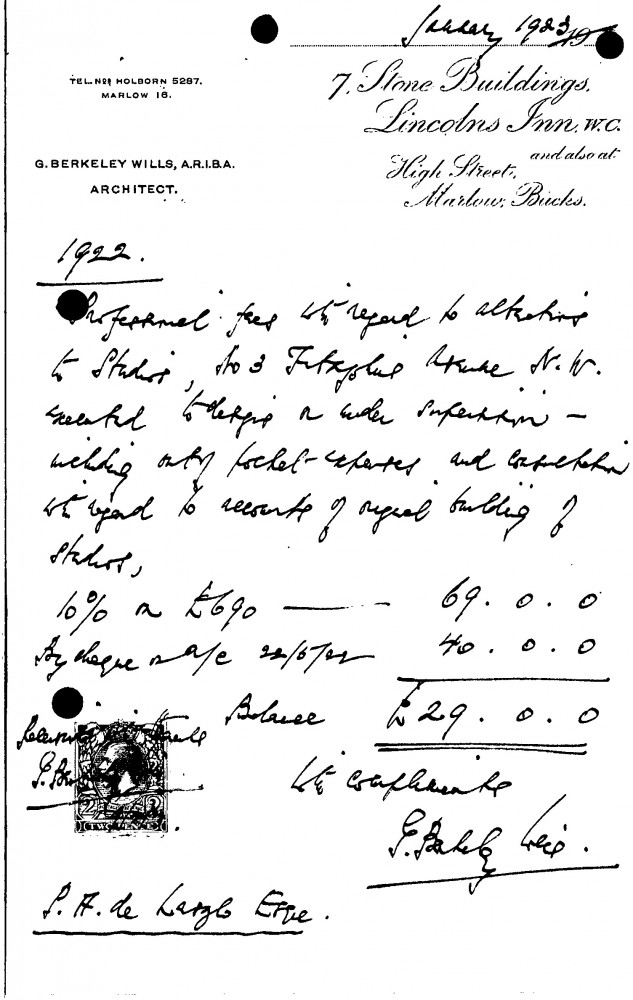 January 1923
TEL. Nos HOLBORN 5287.
MARLOW 18.
7, Stone Buildings,
Lincolns Inn, W.C.
and also at
High Street,
Marlow, Bucks.
G. BERKELEY WILLS, A.R.I.B.A.
ARCHITECT.
1922.
Professional fees with regard to alterations
to Studios, No 3 Fitzjohns Avenue N.W.
executed to design or under supervision –
including out of pocket-expenses and consultation
with regard to accounts of original building of
Studios,
10% on £690 —— 69. 0. 0
By cheque on a/c 22/5/22 40. 0. 0
Balance £29. 0. 0
Received with thanks
G. Be
2 2
TWO PENCE
With compliments
G. Berkeley Wills.
P. A. de Laszlo Esqe.